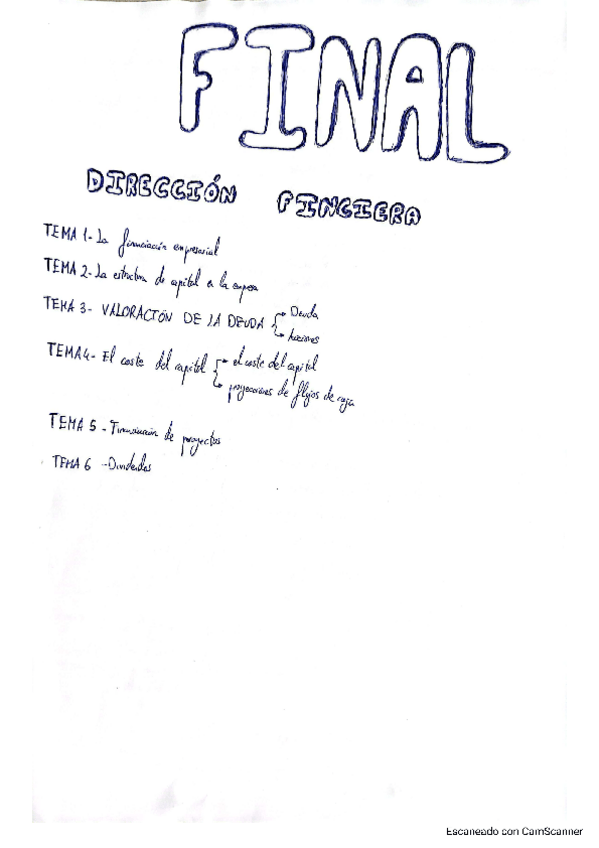 FINAL
DIRECCIÓN FINCIERA
TEMA 1- La financiación empresarial
TEMA 2- La estructura de capital a la empresa
TEMA 3- VALORACIÓN DE LA DEUDA Deuda
Acciones
TEMA 4- El coste del capital el coste del capital
proyecciones de flujos de caja
TEMA 5 - Financiación de proyectos
TEMA 6 - Dividendos
Escaneado con CamScanner